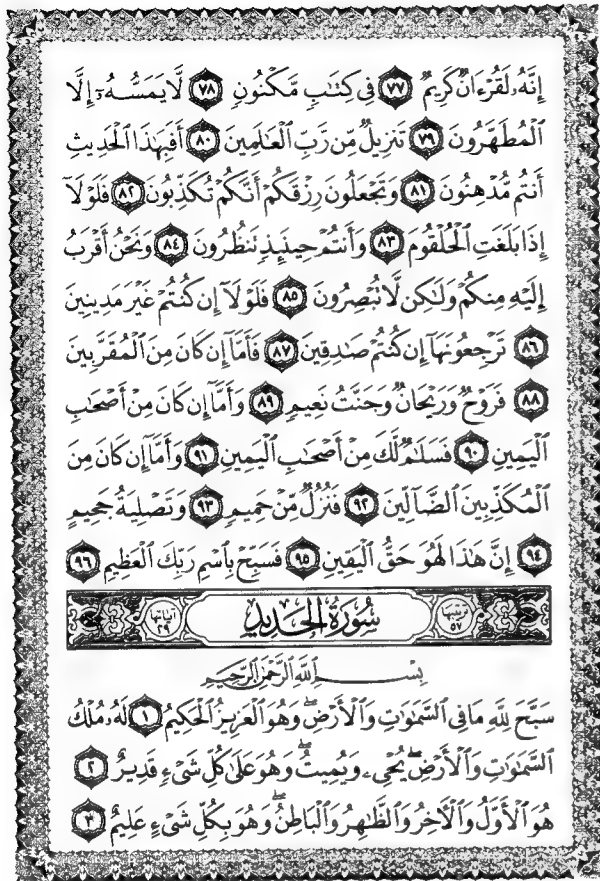 إِنَّهُۥ لَقُرْءَانٌ كَرِيمٌ ٧٧ فِى كِتَٰبٍ مَّكْنُونٍ ٧٨ لَّا يَمَسُّهُۥٓ إِلَّا
ٱلْمُطَهَّرُونَ ٧٩ تَنزِيلٌ مِّن رَّبِّ ٱلْعَٰلَمِينَ ٨٠ أَفَبِهَٰذَا ٱلْحَدِيثِ
أَنتُم مُّدْهِنُونَ ٨١ وَتَجْعَلُونَ رِزْقَكُمْ أَنَّكُمْ تُكَذِّبُونَ ٨٢ فَلَوْلَآ
إِذَا بَلَغَتِ ٱلْحُلْقُومَ ٨٣ وَأَنتُمْ حِينَئِذٍ تَنظُرُونَ ٨٤ وَنَحْنُ أَقْرَبُ
إِلَيْهِ مِنكُمْ وَلَٰكِن لَّا تُبْصِرُونَ ٨٥ فَلَوْلَآ إِن كُنتُمْ غَيْرَ مَدِينِينَ
٨٦ تَرْجِعُونَهَآ إِن كُنتُمْ صَٰدِقِينَ ٨٧ فَأَمَّآ إِن كَانَ مِنَ ٱلْمُقَرَّبِينَ
٨٨ فَرَوْحٌ وَرَيْحَانٌ وَجَنَّتُ نَعِيمٍ ٨٩ وَأَمَّآ إِن كَانَ مِنْ أَصْحَٰبِ
ٱلْيَمِينِ ٩٠ فَسَلَٰمٌ لَّكَ مِنْ أَصْحَٰبِ ٱلْيَمِينِ ٩١ وَأَمَّآ إِن كَانَ مِنَ
ٱلْمُكَذِّبِينَ ٱلضَّآلِّينَ ٩٢ فَنُزُلٌ مِّنْ حَمِيمٍ ٩٣ وَتَصْلِيَةُ جَحِيمٍ
٩٤ إِنَّ هَٰذَا لَهُوَ حَقُّ ٱلْيَقِينِ ٩٥ فَسَبِّحْ بِٱسْمِ رَبِّكَ ٱلْعَظِيمِ ٩٦
ترتيبها ٥٧ سُورَةُ الحَدِيدِ آياتها ٢٩
بِسْمِ ٱللَّهِ ٱلرَّحْمَٰنِ ٱلرَّحِيمِ
سَبَّحَ لِلَّهِ مَا فِى ٱلسَّمَٰوَٰتِ وَٱلْأَرْضِۖ وَهُوَ ٱلْعَزِيزُ ٱلْحَكِيمُ ١ لَهُۥ مُلْكُ
ٱلسَّمَٰوَٰتِ وَٱلْأَرْضِۖ يُحْىِۦ وَيُمِيتُۖ وَهُوَ عَلَىٰ كُلِّ شَىْءٍ قَدِيرٌ ٢
هُوَ ٱلْأَوَّلُ وَٱلْءَاخِرُ وَٱلظَّٰهِرُ وَٱلْبَاطِنُۖ وَهُوَ بِكُلِّ شَىْءٍ عَلِيمٌ ٣